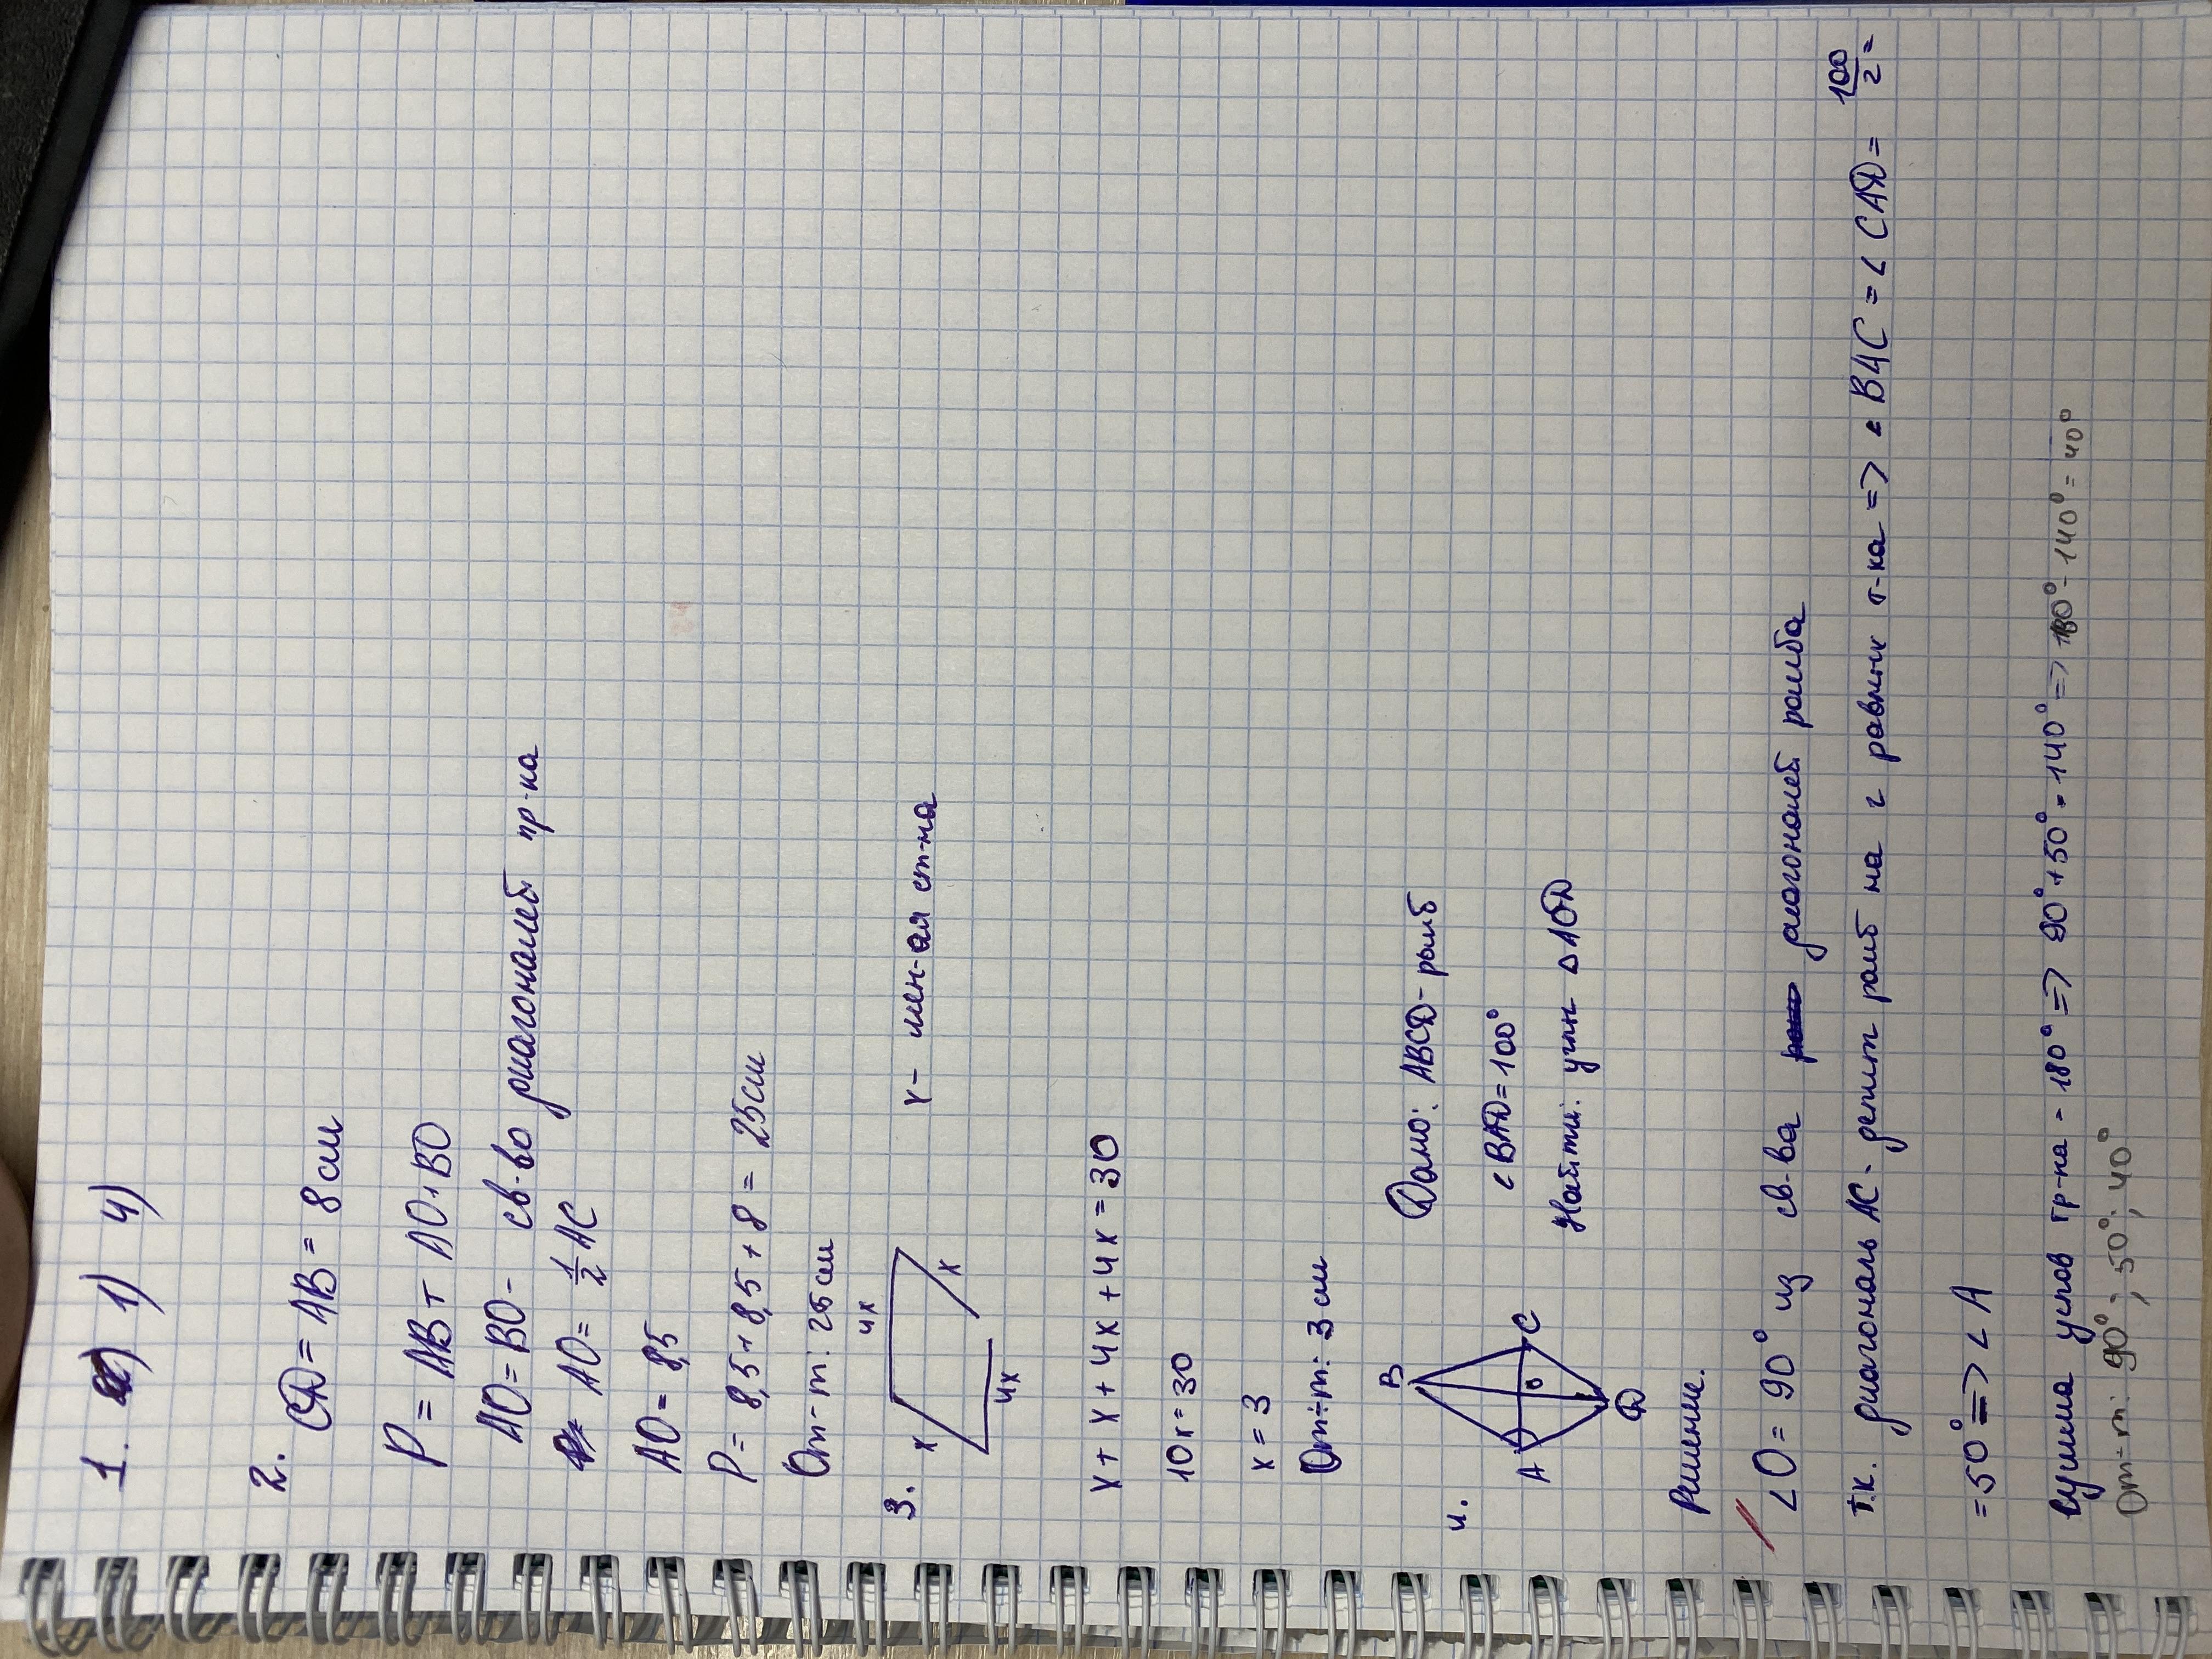 1. 2) 1) 4)
2. CD = AB = 8 см
P = AB + AO + BO
AO = BO - св-во диагоналей пр-ка
AO = 1/2 AC
AO = 8,5
P = 8,5 + 8,5 + 8 = 25 см
От-т: 25 см
3. x 4x x 4x x - мен-ая ст-на
x + x + 4x + 4x = 30
10x = 30
x = 3
От-т: 3 см
4. A B C D O Дано: ABCD - ромб
∠BAD = 100°
Найти: углы △AOD
Решение.
∠O = 90° из св-ва диагоналей ромба
т.к. диагональ AC - делит ромб на 2 равных т-ка => ∠BAC = ∠CAD = 100/2 =
= 50° => ∠A
Сумма углов тр-ка - 180° => 90° + 50° = 140° => 180° - 140° = 40°
От-т: 90°; 50°; 40°